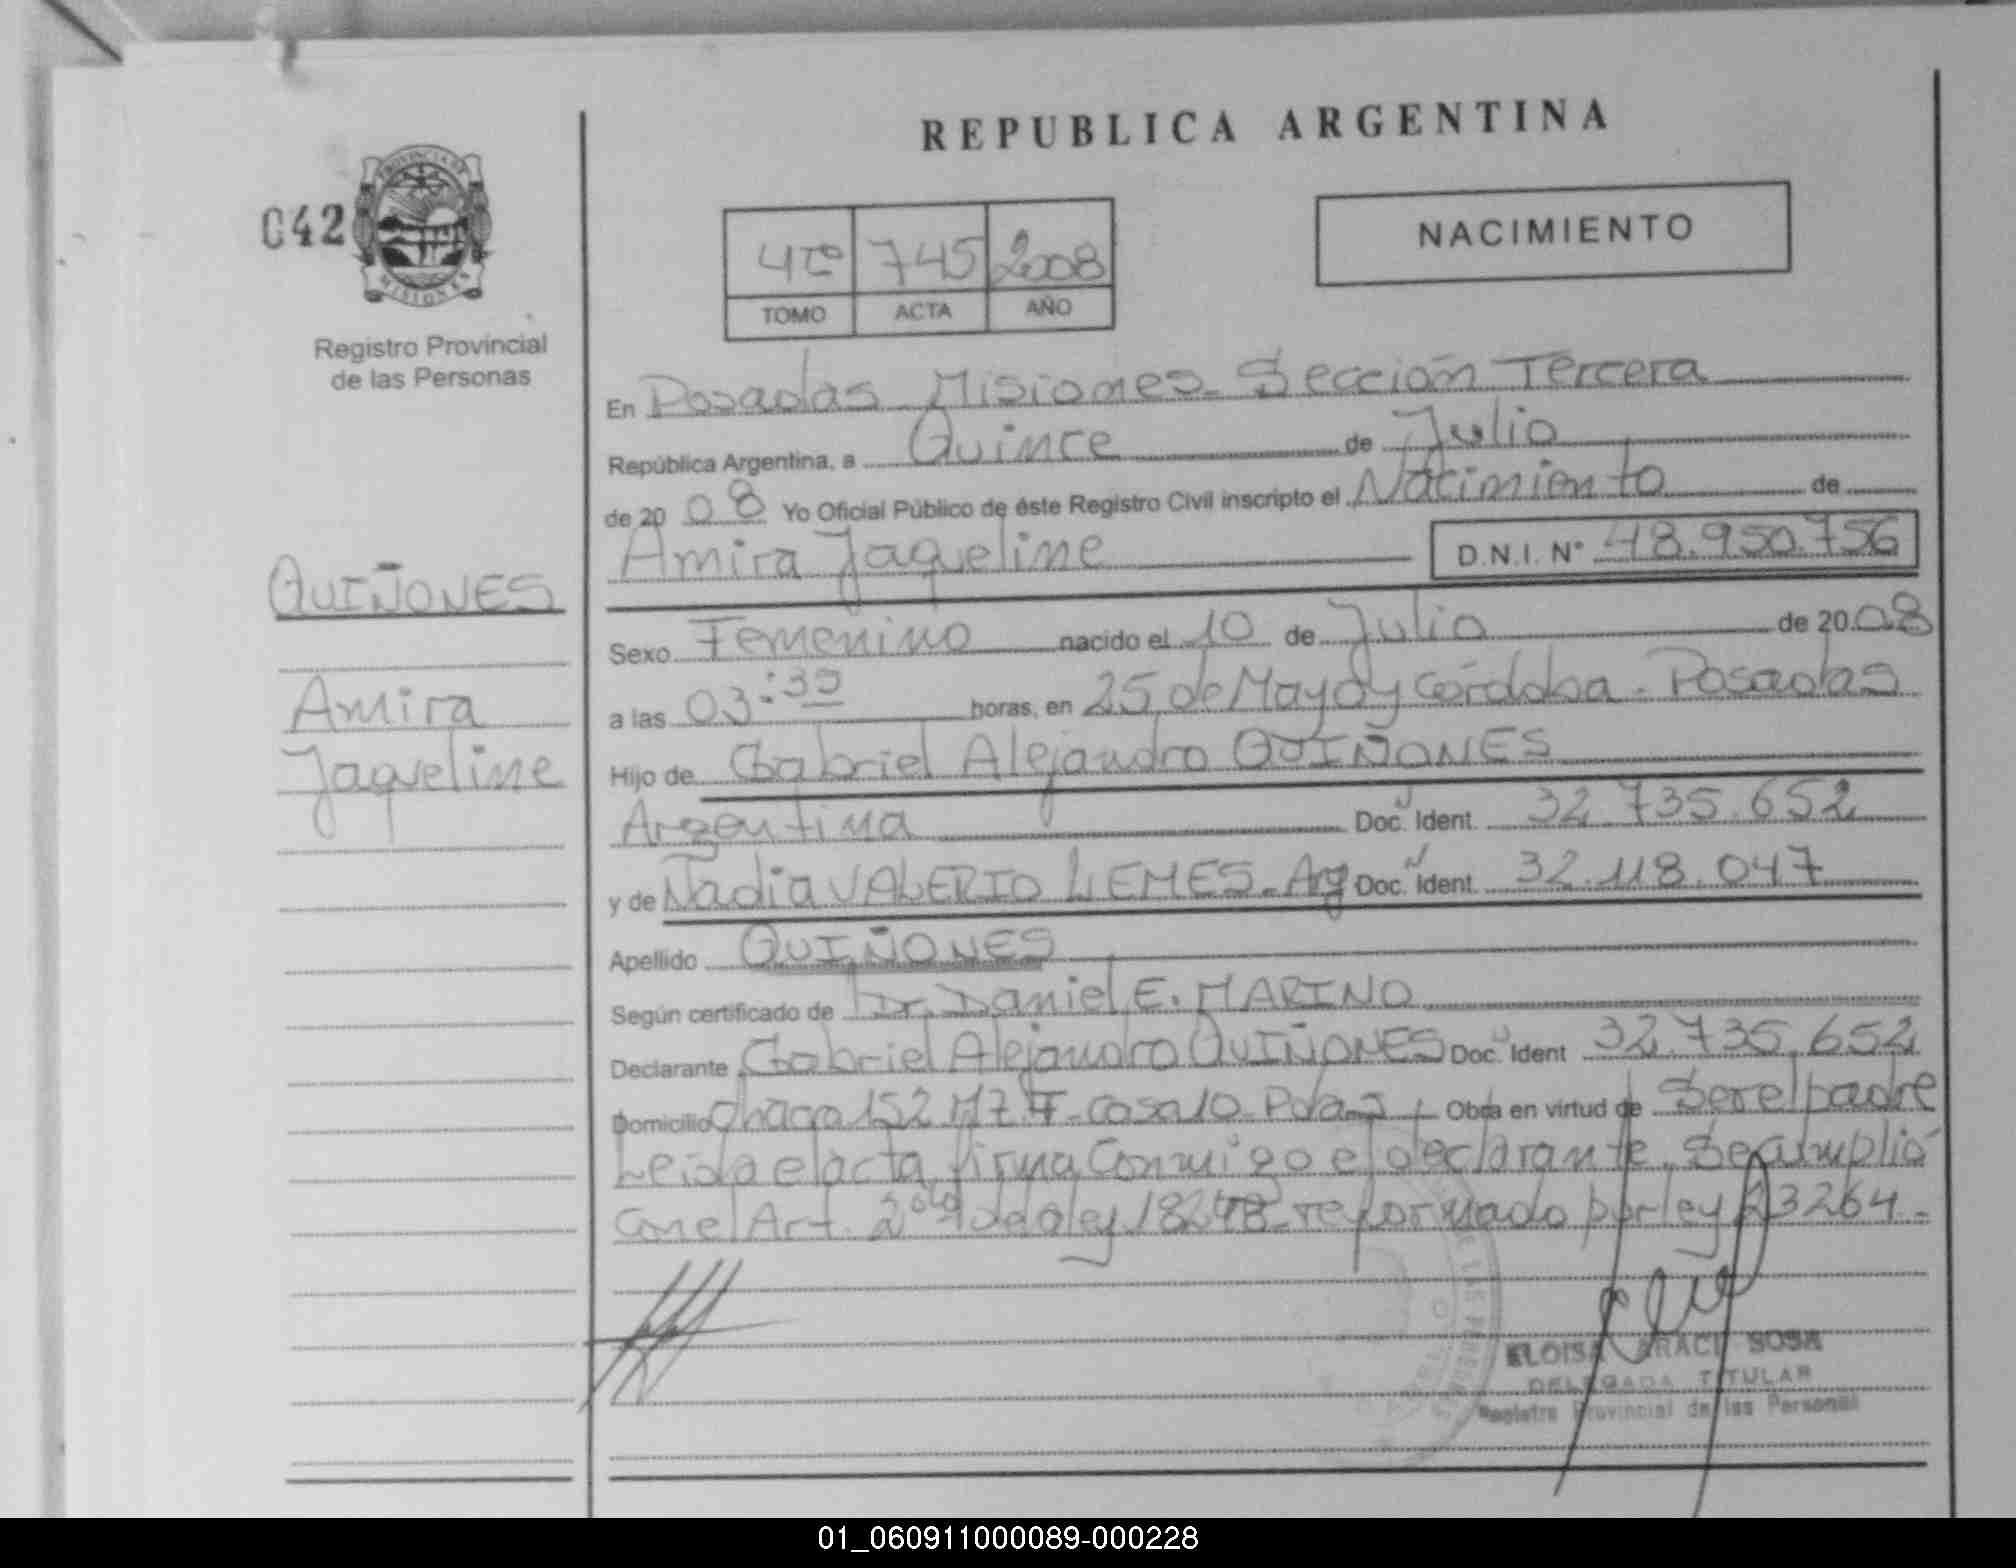 REPUBLICA ARGENTINA
C42
PROVINCIA DE
MISIONES
Registro Provincial
de las Personas
4to 745 2008
TOMO ACTA AÑO
NACIMIENTO
En Posadas Misiones. Sección Tercera
República Argentina, a Quince de Julio
de 2008 Yo Oficial Público de éste Registro Civil inscripto el Nacimiento de
Amira Jaqueline D.N.I. N° 48.950.756
QUIÑONES
Amira
Jaqueline
Sexo Femenino nacido el 10 de Julio de 2008
a las 03:30 horas, en 25 de Mayo y Córdoba - Posadas
Hijo de Gabriel Alejandro QUIÑONES
Argentina Doc. Ident. 32.735.652
y de Nadia VALERIO LEMES - Arg Doc. Ident. 32.118.047
Apellido QUIÑONES
Según certificado de Dr. Daniel E. MARINO
Declarante Gabriel Alejandro QUIÑONES Doc. Ident 32.735.652
Domicilio Chacra 152 Mz. F - casa 10 - Pdas Obra en virtud de Ser el padre
Leída el acta, firma Conmigo el declarante. Se Cumplió
con el Art. 2° de la ley 18248 - reformado por ley 23264 -
ELOISA ARACI SOSA
DELEGADA TITULAR
Registro Provincial de las Personas
01_060911000089-000228